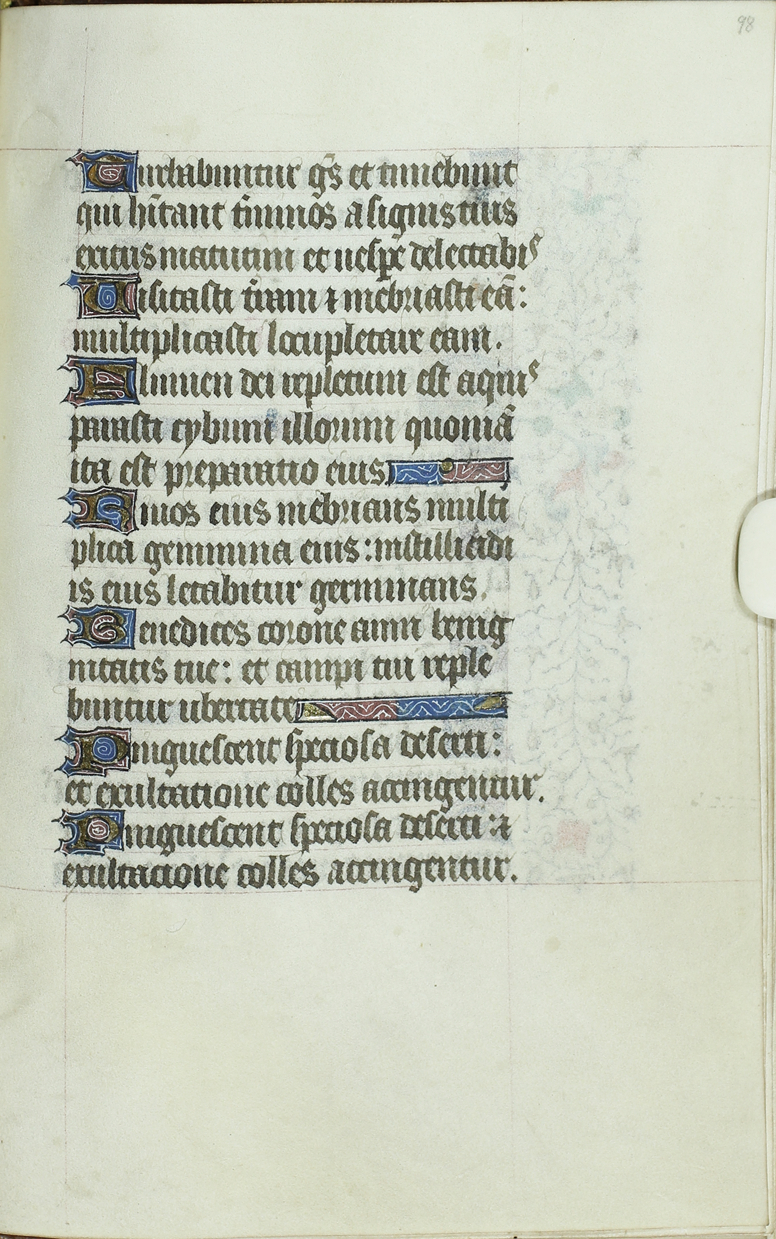 98
Turbabuntur gẽs et timebunt
qui hĩtant t̃minos a signis tuis
exitus matutini et uesp̃e delectabis
Uisitasti t̃ram ⁊ inebriasti eã:
multiplicasti locupletare eam.
Flumen dei repletum est aquis
parasti cybum illorum quoniã
ita est preparatio eius
Riuos eius inebrians multi
plica genimina eius: in stillicidi
is eius letabitur germinans.
Benedices corone anni benig
nitatis tue: et campi tui reple
buntur ubertate
Pinguescent speciosa deserti:
et exultatione colles accingentur.
Pinguescent speciosa deserti: ⁊
exultacione colles accingentur.